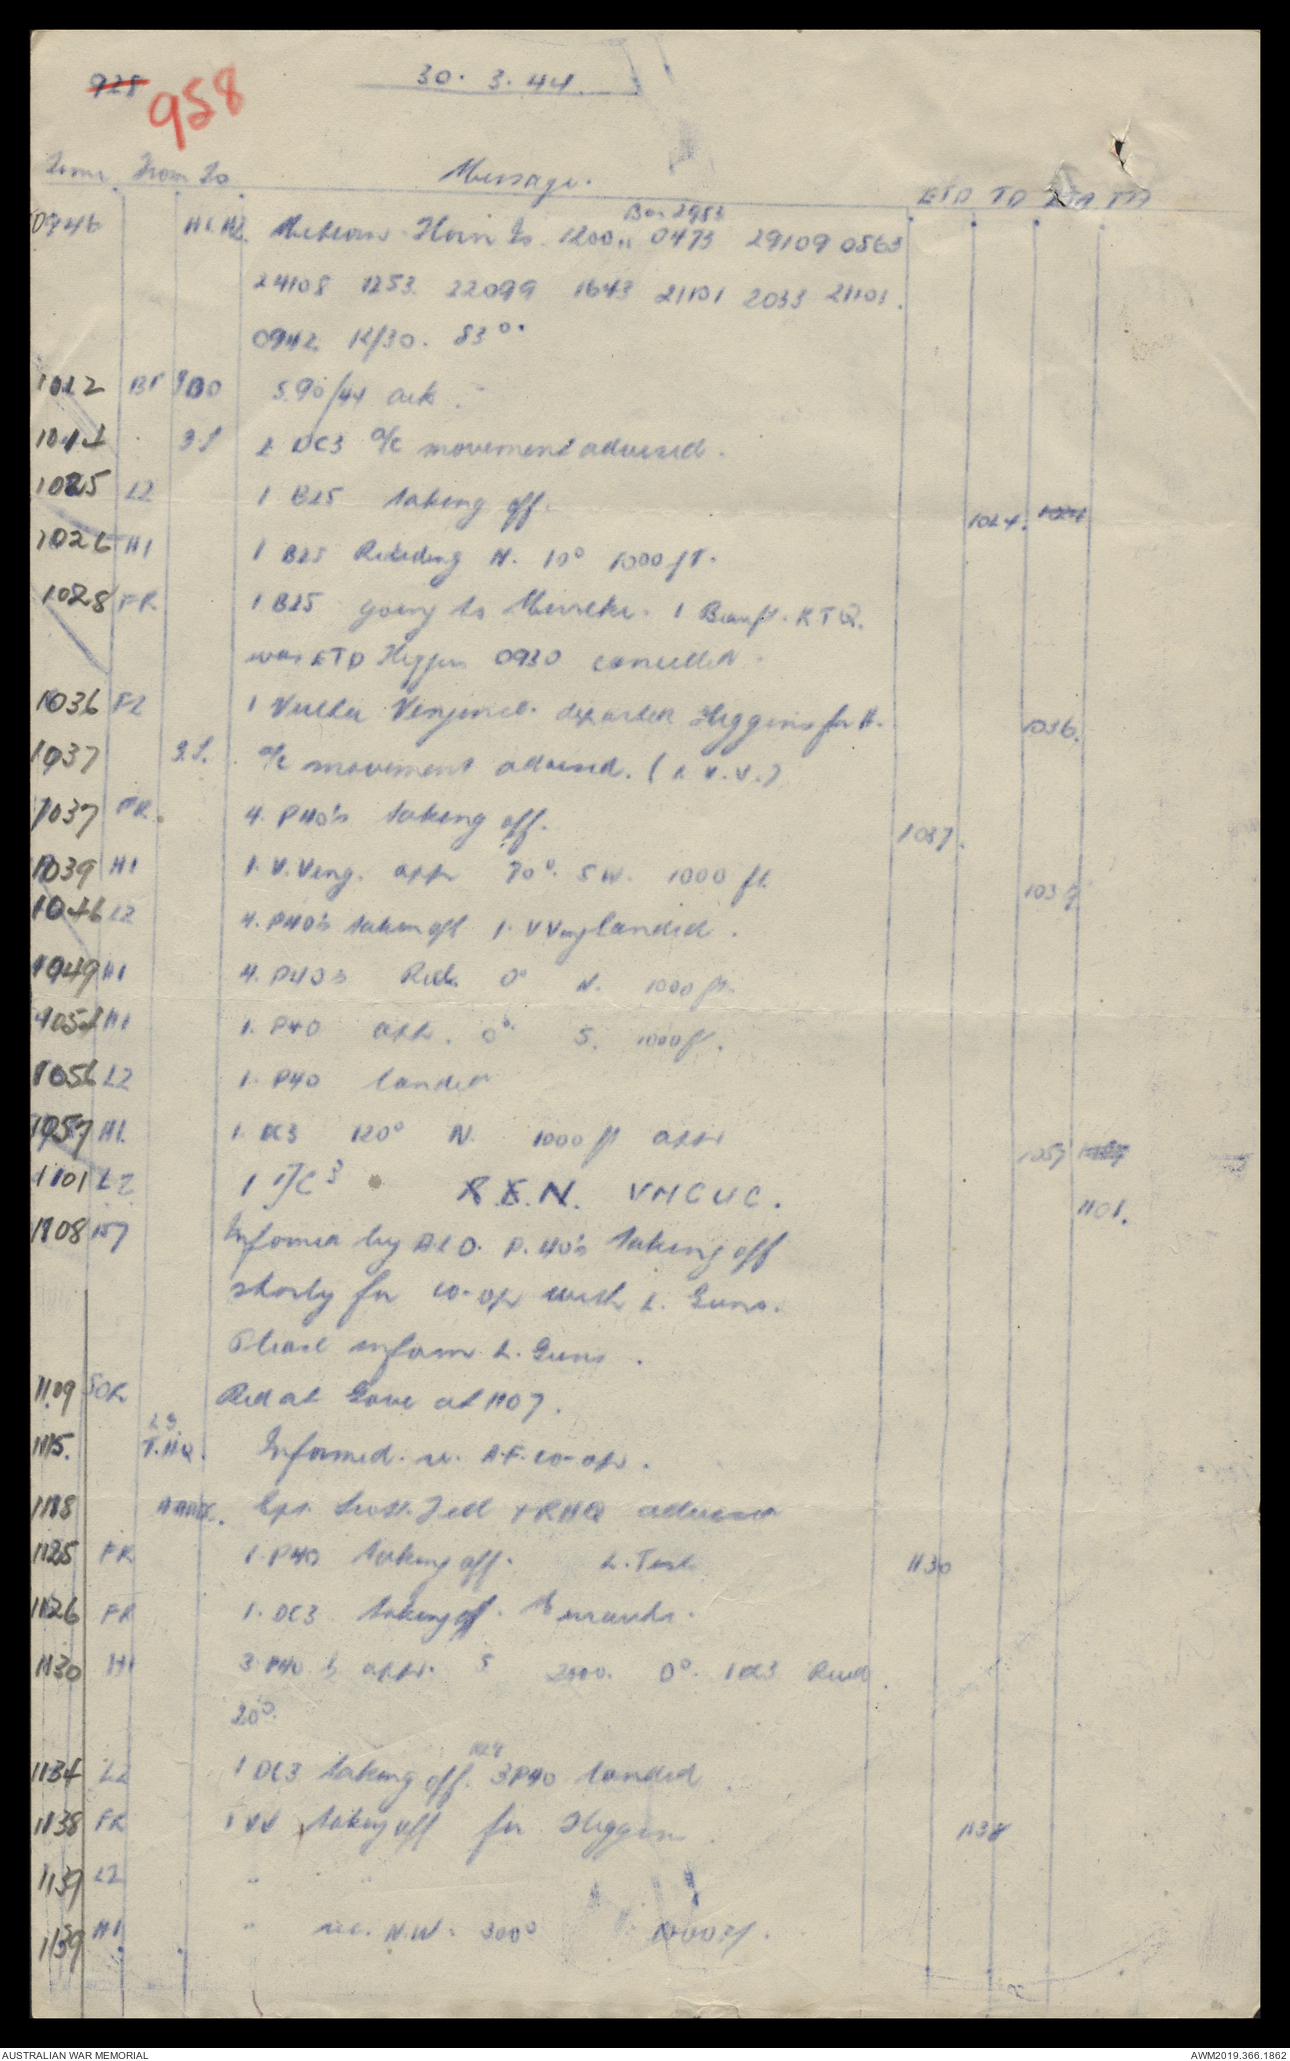 928 958
30. 3. 44.
Time From To Message. ETD TD ETA TA
Bar 2983
0946 H1. H2. Meteor Horn Is. 1200 0473 29109 0863
24108 1253 22099 1643 21101 2033 21101.
0942 K/30. 83°.
1012 BF 9DO 590/44 ack.
101 2 DC3 a/c movement advised.
1025 L2 1 B25 taking off. 1024. 1024
1026 H1 1 B25 Receding N. 10° 1000 ft.
1028 FR 1 B25 going to Merauke. 1 Beauft. KTQ.
was ETD Higgins 0930 cancelled.
1036 FR 1 Vultee Vengence. departed Higgins for H. 1036.
1037 a/c movement advised. (1 V.V.)
1037 FR. 4. P40's taking off. 1037.
1039 H1 1. V. Veng. appr 70°. SW. 1000 ft. 1039
1046 L2 4. P40's taken off 1. V Veng landed.
1049 H1 4. P40s Red. 0° N. 1000 ft.
105 H1 1. P40 appr. 0° S. 1000 ft.
1056 L2 1. P40 landed
1057 H1. 1. DC3 120° N. 1000 ft appr 1057
1101 L2 1 DC3 R.E.N. VHCUC. 1101.
1108 Informed by A.L.O. P.40's taking off
shorly for co-op with L. Guns.
Please inform L. Guns.
1109 SOR Red at Gove at 1107.
LS
1115. T.HQ. Informed. re. A.F. co-op.
1118 Cpt. Scott. Tell + RHQ advised
1125 FR 1. P40 taking off. L. Test 1130
1126 FR 1. DC3 taking off. Merauke.
1130 H1 3 P40's appr. S 2000. 0°. 1 DC3 Reced.
20°.
1129
1134 L2 1 DC3 taking off. 3 P40 landed
1138 FR 1 VV taking off for Higgins 1138
1139 L2 " "
1139 H1 " rec. N.W. 300° 1000 ft.
AUSTRALIAN WAR MEMORIAL AWM2019.366.1862